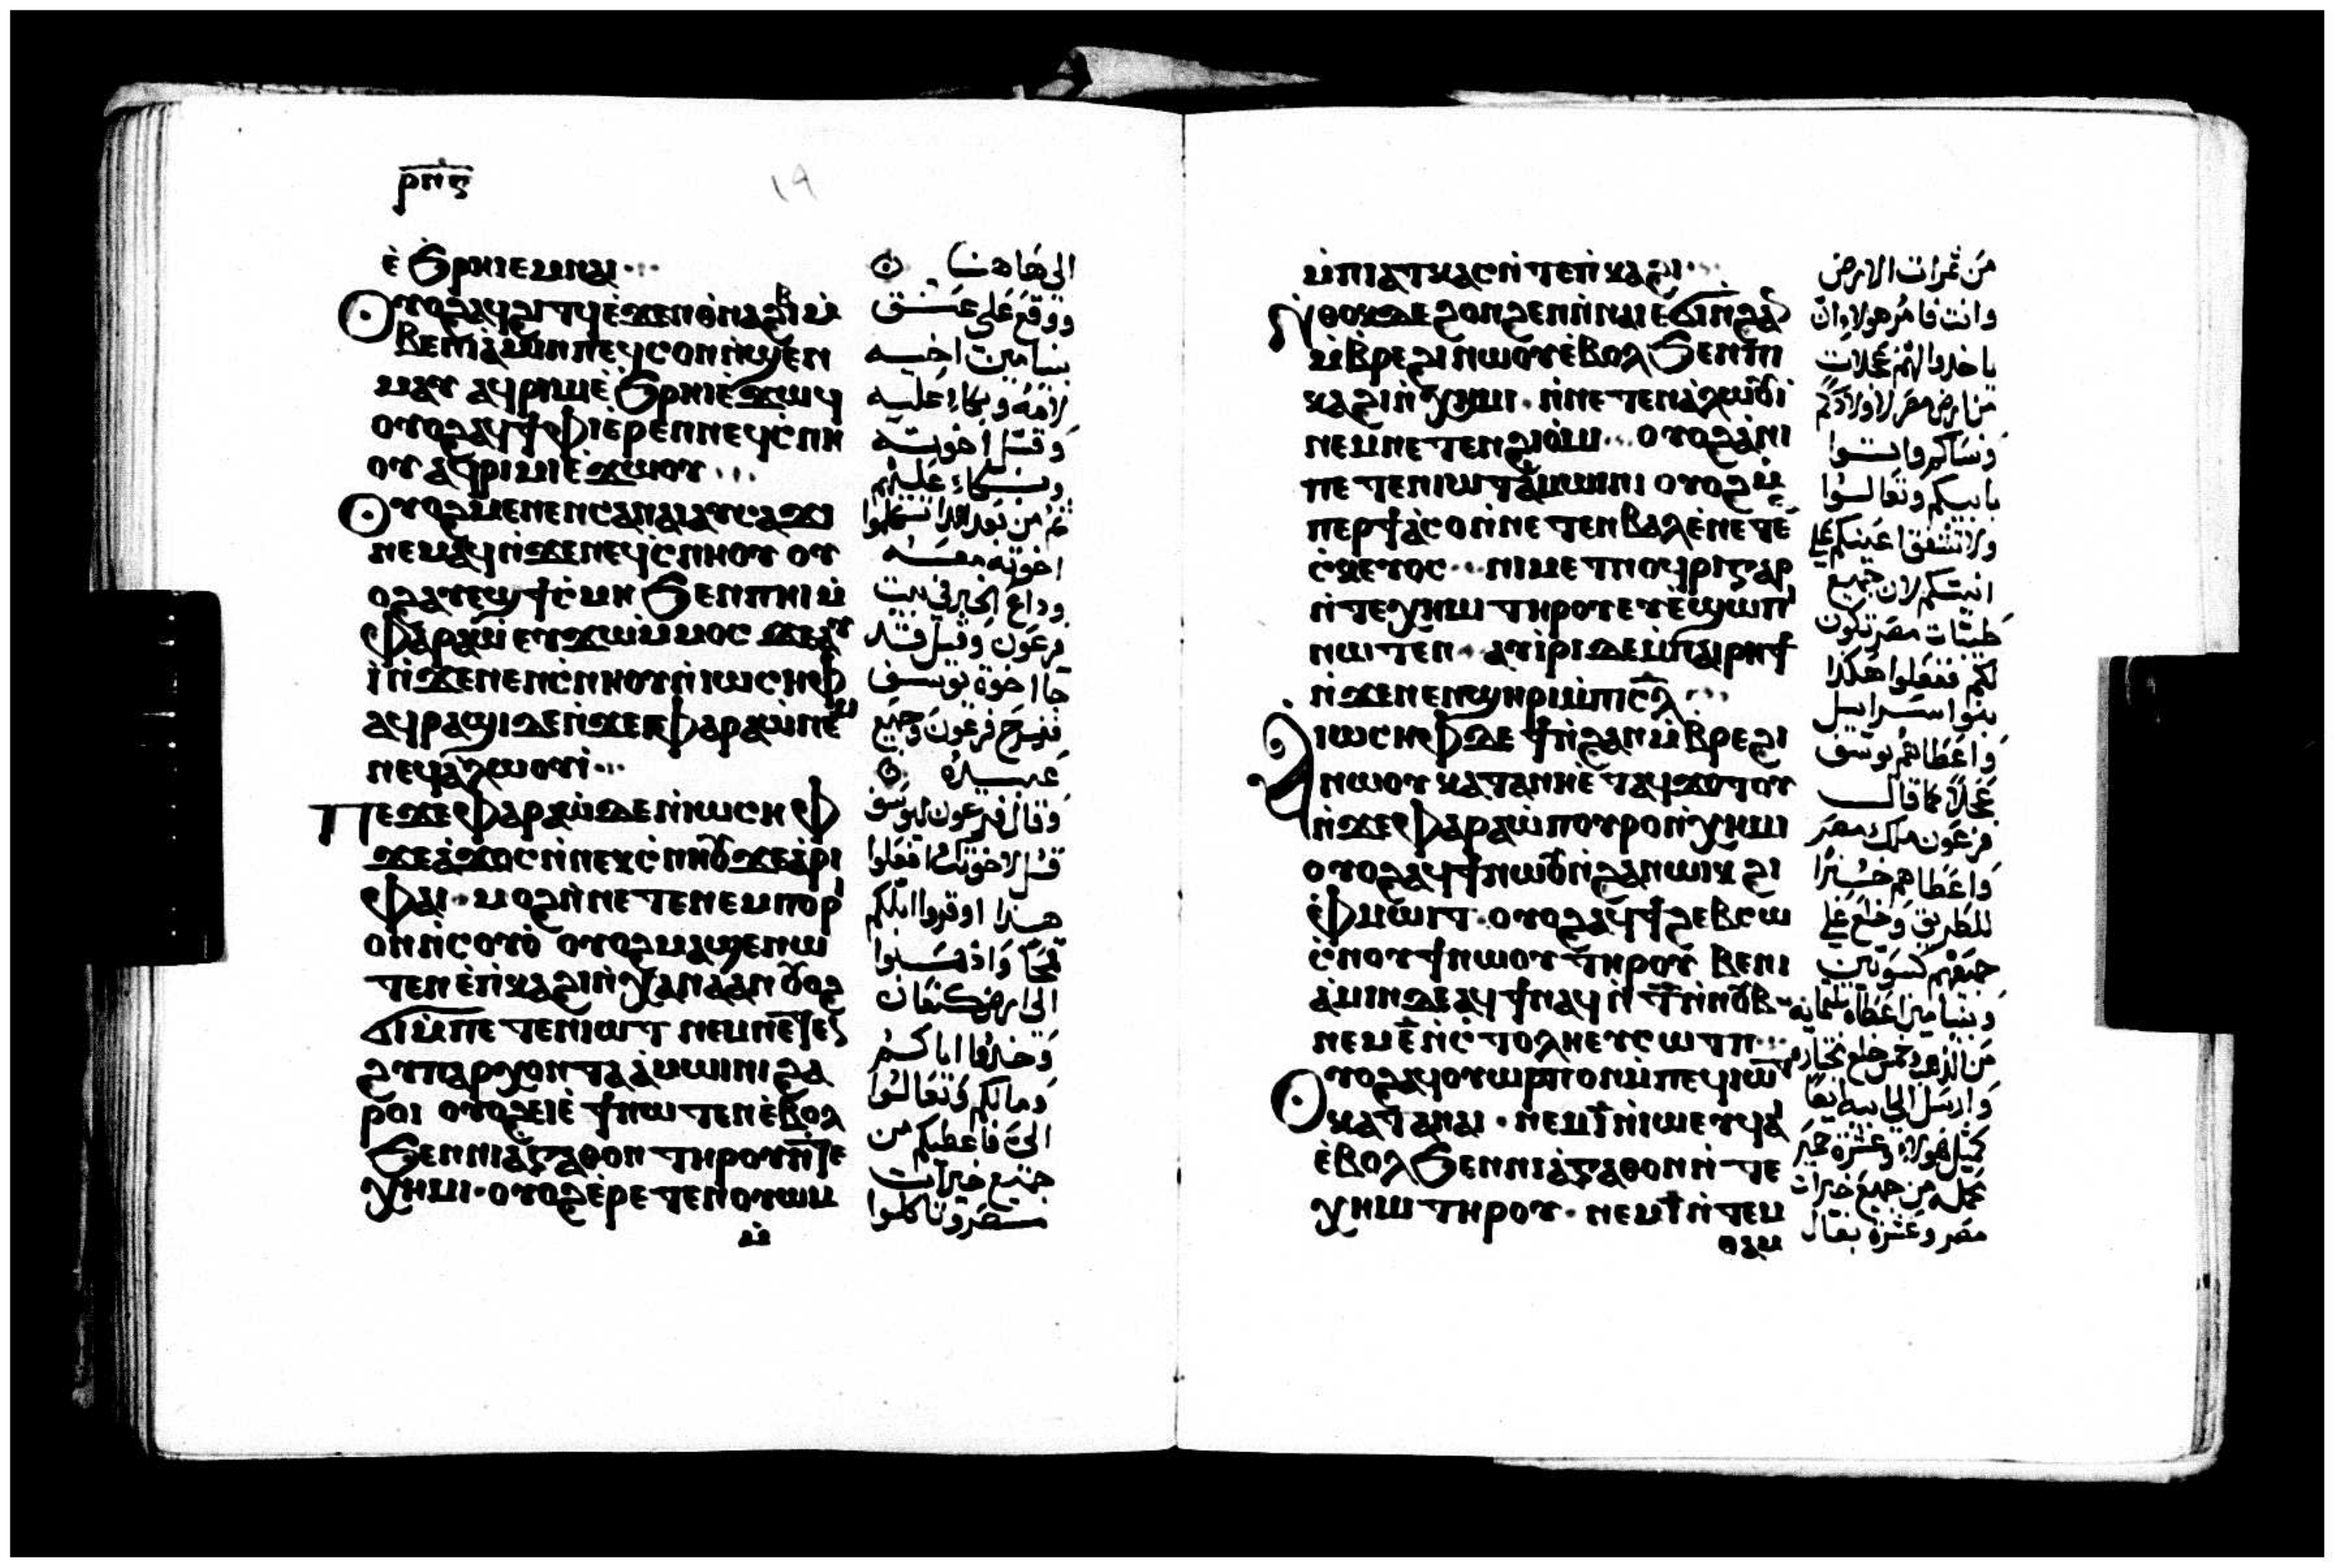 ⲣⲛⲋ
ⲉ̀ϧⲣⲏⲓⲉⲙⲛⲁⲓ
ⲟⲩⲟϩⲁϥϩⲓⲧϥⲉ̀ϫⲉⲛⲑ̀ⲛⲁϩⲃⲓⲙ̀
ⲃⲉⲛⲓⲁⲙⲓⲛⲡⲉϥⲥⲟⲛⲛ̀ϣⲉⲛ
ⲙⲁⲩ ⲁϥⲣⲓⲙⲓⲉ̀ϧⲣⲏⲓⲉ̀ϫⲱϥ
ⲟⲩⲟϩⲁϥϯⲫⲓⲉ̀ⲣⲉⲛⲛⲉϥⲥ̀ⲛⲏ
ⲟⲩ ⲁϥⲣⲓⲙⲓⲉ̀ϫⲱⲟⲩ
ⲟⲩⲟϩⲙⲉⲛⲉⲛⲥⲁⲛⲁⲓⲁⲩⲥⲁϫⲓ
ⲛⲉⲙⲁϥⲛ̀ϫⲉⲛⲉϥⲥ̀ⲛⲏⲟⲩ ⲟⲩ
ⲟϩⲁⲩⲉϣϯⲥ̀ⲙⲏ ϧⲉⲛⲡⲏⲓⲙ̀
ⲫⲁⲣⲁⲱ̀ ⲉⲩϫⲱⲙ̀ⲙⲟⲥ ϫⲉⲁⲩ
ⲓ̀ⲛ̀ϫⲉⲛⲉⲛⲥ̀ⲛⲏⲟⲩⲛ̀ⲓⲱⲥⲏⲫ
ⲁϥⲣⲁϣⲓⲇⲉⲛ̀ϫⲉⲫⲁⲣⲁⲱ̀ⲛⲉⲙ
ⲛⲉϥⲁ̀ⲗⲱⲟⲩⲓ̀
ⲡⲉϫⲉⲫⲁⲣⲁⲱ̀ⲇⲉⲛ̀ⲓⲱⲥⲏⲫ
ϫⲉⲁ̀ϫⲟⲥⲛ̀ⲛⲉⲕⲥ̀ⲛⲏⲟⲩϫⲉⲁ̀ⲣⲓ
ⲫⲁⲓ ⲙⲟϩⲛ̀ⲛⲉⲧⲉⲛⲉⲙⲡⲟⲣ
ⲟⲛⲛ̀ⲥⲟⲩⲟ̀ ⲟⲩⲟϩⲙⲁϣⲉⲛⲱ
ⲧⲉⲛ ⲉ̀ⲡ̀ⲕⲁϩⲓⲛ̀ⲭⲁⲛⲁⲁⲛ ⲟⲩⲟϩ
ϭⲓⲙ̀ⲡⲉⲧⲉⲛⲓⲱⲧ ⲛⲉⲙⲛⲉⲧⲉ
ϩⲩⲡⲁⲣⲭⲟⲛⲧⲁⲁ̀ⲙⲱⲓⲛⲓ ϩⲁ
ⲣⲟⲓ ⲟⲩⲟϩⲉⲓⲉ̀ϯⲛⲱⲧⲉⲛⲉ̀ⲃⲟⲗ
ϧⲉⲛⲛⲓⲁ̀ⲅⲁⲑⲟⲛ ⲧⲏⲣⲟⲩⲛ̀ⲧⲉ
ⲭⲏⲙⲓ ⲟⲩⲟϩⲉ̀ⲣⲉⲧⲉⲛⲟⲩⲱⲙ
ⲙ̀
الى هاهنا
ووقع على عنق
بنيامين اخيه
لامه وبكا عليه
وقبل اخوته
وبكا عليهم
ثم من بعد هذا تكلموا
اخوته معه
وذاع الخبر في بيت
فرعون وقيل قد
جا اخوة يوسف
ففرح فرعون وجميع
عبيده
وقال فرعون ليوسف
قل لاخوتك افعلوا
هذا اوقروا ابلكم
قمحا واذهبوا
الى ارض كنعان
وخذوا اباكم
ومالكم وتعالوا
الي فاعطيكم من
جميع خيرات
مصر وتاكلوا
ⲙ̀ⲡⲓⲁⲧⲕⲁⲥⲛ̀ⲧⲉⲡ̀ⲕⲁϩⲓ
ⲛ̀ⲑⲟⲕⲇⲉϩⲟⲛϩⲉⲛⲛ̀ⲛⲁⲓ ⲉ̀ϭⲓⲛϩⲁ
ⲙ̀ⲃⲣⲉϩⲓ ⲛⲱⲟⲩⲉ̀ⲃⲟⲗϧⲉⲛⲡ
ⲕⲁϩⲓⲛ̀ⲭⲏⲙⲓ ⲛ̀ⲛⲉⲧⲉⲛⲁ̀ⲗⲱⲟⲩⲓ̀
ⲛⲉⲙⲛⲉⲧⲉⲛϩⲓⲟ̀ⲙⲓ ⲟⲩⲟϩⲁ̀ⲛⲓ
ⲡⲉⲧⲉⲛⲓⲱⲧⲁ̀ⲙⲱⲓⲛⲓ ⲟⲩⲟϩⲙ̀
ⲡⲉⲣϯⲁ̀ⲥⲟⲛ̀ⲛⲉⲧⲉⲛⲃⲁⲗⲉ̀ⲛⲉⲧⲉ
ⲥ̀ⲕⲉⲩⲟⲥ ⲛⲓⲙⲉⲧⲛⲟϥⲣⲓⲅⲁⲣ
ⲛ̀ⲧⲉⲭⲏⲙⲓ ⲧⲏⲣⲟⲩⲉⲩⲉ̀ϣⲱⲡⲓ
ⲛⲱⲧⲉⲛ ⲁⲩⲓ̀ⲣⲓⲇⲉⲙ̀ⲡⲁⲓⲣⲏϯ
ⲛ̀ϫⲉⲛⲉⲛϣⲏⲣⲓⲙ̀ⲡⲓⲥ̅ⲗ̅
ⲁ̀ⲓⲱⲥⲏⲫⲇⲉ ϯⲛ̀ϩⲁⲛⲙ̀ⲃⲣⲉϩⲓ
ⲛⲱⲟⲩ ⲕⲁⲧⲁⲛⲏⲉ̀ⲧⲁϥϫⲟⲧⲟⲩ
ⲛ̀ϫⲉⲫⲁⲣⲁⲱ̀ⲡⲟⲩⲣⲟⲛ̀ⲭⲏⲙⲓ
ⲟⲩⲟϩⲁϥϯⲛⲱⲟⲩⲛ̀ϩⲁⲛⲱⲓⲕ ϩⲓ
ⲉ̀ⲫⲙⲱⲓⲧ ⲟⲩⲟϩⲁϥϯϩⲉⲃⲥⲱ
ⲥ̀ⲛⲟⲩϯⲛⲱⲟⲩ ⲧⲏⲣⲟⲩ ⲃⲉⲛⲓ
ⲁ̀ⲙⲓⲛⲇⲉⲁϥϯⲛⲁϥⲛ̀ⲧ̅ⲛ̀ⲛⲟⲩⲃ
ⲛⲉⲙⲉ̅ⲛ̀ⲥ̀ⲧⲟⲗⲏⲉⲩⲥⲱⲧⲡ
ⲟⲩⲟϩⲁϥⲟⲩⲱⲣⲡⲟⲛⲙ̀ⲡⲉϥⲓⲱⲧ
ⲕⲁⲧⲁⲛⲁⲓ ⲛⲉⲙⲓ̅ⲛ̀ⲓⲱⲉⲩϥⲁⲓ
ⲉ̀ⲃⲟⲗϧⲉⲛⲛⲓⲁ̀ⲅⲁⲑⲟⲛⲛ̀ⲧⲉ
ⲭⲏⲙⲓ ⲧⲏⲣⲟⲩ ⲛⲉⲙⲓ̅ⲛ̀ⲧⲉⲙ
ⲟⲁⲙ
من ثمرات الارض
وانت فامر هولاء ان
ياخذوا لهم عجلات
من ارض مصر لاولادكم
ونساكم واتوا
بابيكم وتعالوا
ولا تشفق اعينكم على
انيتكم لان جميع
طيبات مصر تكون
لكم ففعلوا هكذا
بنوا اسراييل
واعطاهم يوسف
عجلا كما قال
فرعون ملك مصر
واعطاهم خبزا
للطريق وخلع على
جميعهم كسوتين
وبنيامين اعطاه ثلثمايه
من الذهب وخمس خلع مختاره
وارسل الى ابيه ايضا
كمثل هولاء وعشرة حمير
محمله من جميع خيرات
مصر وعشرة بغال